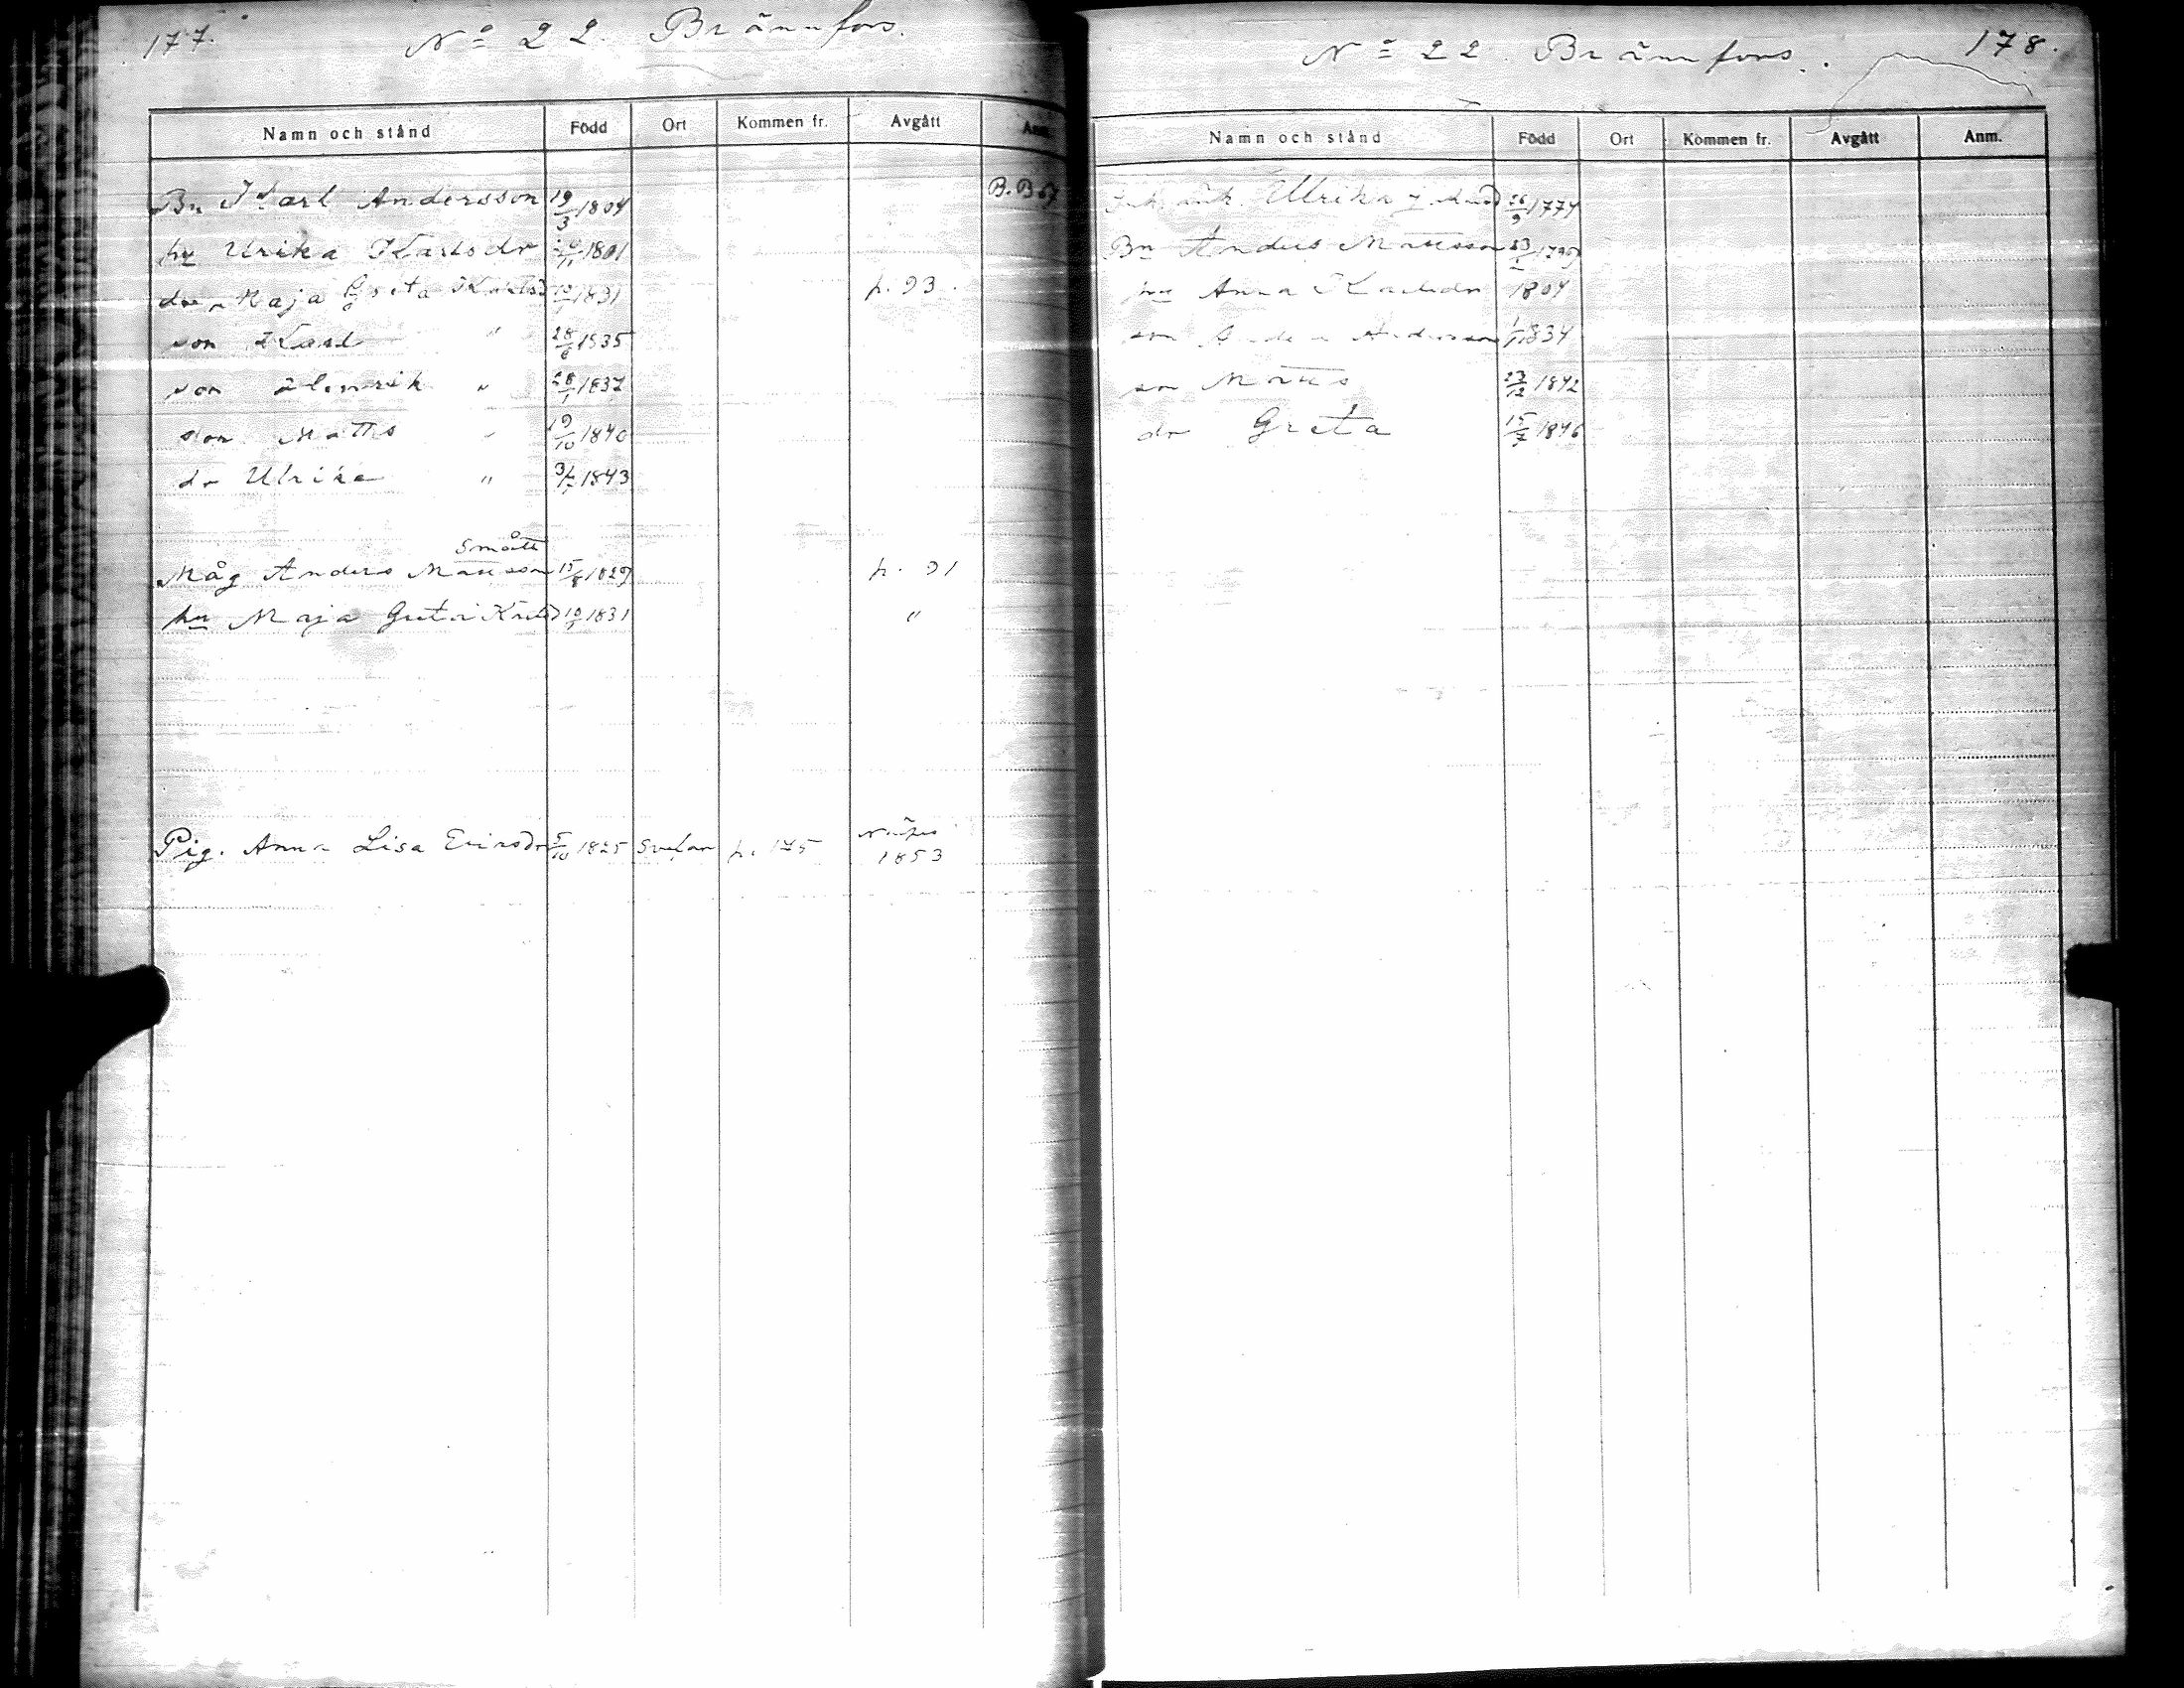 177.
No 22. Brännfors.
Namn och stånd Född Ort Kommen fr. Avgått Anm.
Bn Karl Andersson 19/3 1804 B.B 67
hu Ulrika Karlsdr /11 1801
dr Maja Greta Karlsd 10/1 1831 p. 93.
son Karl " 28/6 1835
son Henrik " 28/1 1837
son Matts " 19/10 1840
dr Ulrika " 1843
Smått
Måg Anders Mattsson 15/8 1829 p. 91
hu Maja Greta Karlsd 10/1 1831 "
Pig. Anna Lisa Ericsdr 5/10 1825 p. 175 Närpes
1853
178.
No 22. Brännfors.
Namn och stånd Född Ort Kommen fr. Avgått Anm.
änk. Ulrika 26/9 1774
Bn Anders Mattsson 23/2 1799
hu Anna Karlsdr 1804
son Anders Andersson 1/1 1834
son Matts 23/12 1842
dr Greta 15/7 1846